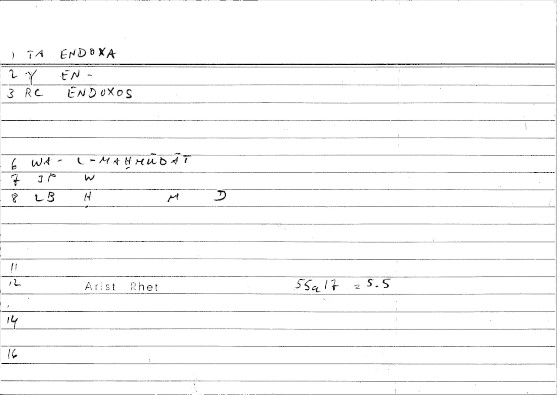 1 TA ENDOXA
2 γ EN-
3 RC ENDOXOS
6 WA-L-MAḤMŪDĀT
7 JP W
8 LB Ḥ M D
11
12 Arist Rhet 55a17 = 5.5
14
16